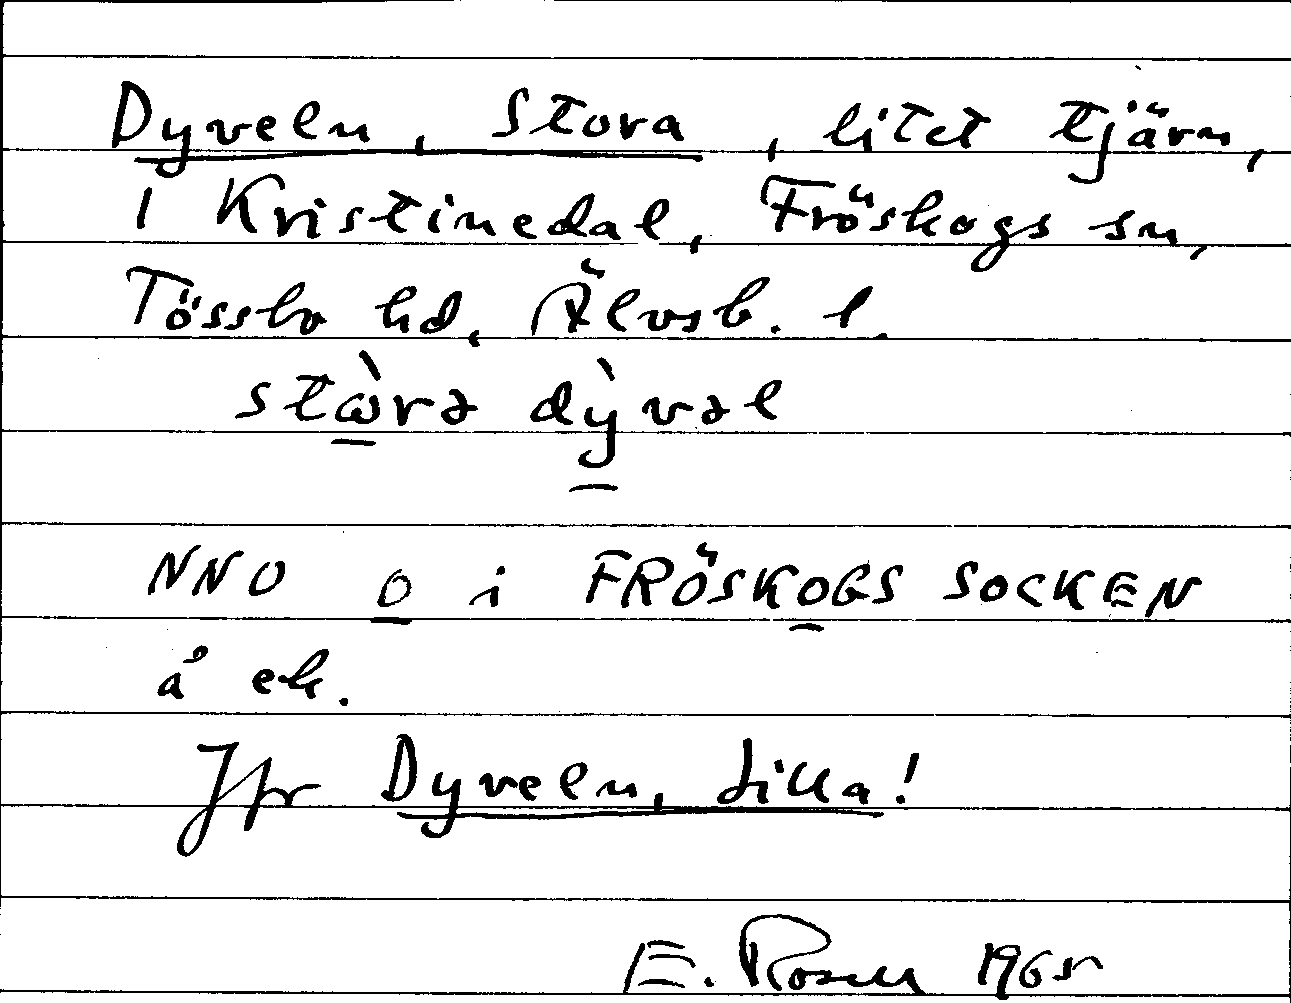 Dyveln, Stora, litet tjärn,
1 Kristinedal, Fröskogs sn,
Tössbo hd, Älvsb. l.
stὼrə dỳvəl
NNO o i FRÖSKOGS SOCKEN
å ek.
Jfr Dyveln, Lilla!
E. Rosell 1965